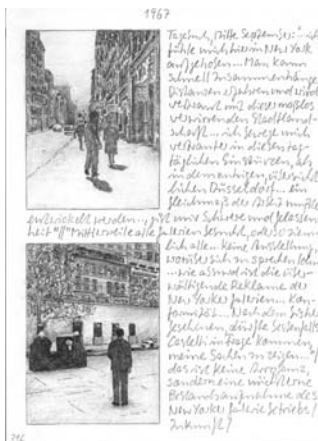 1967
Tagebuch, Mitte September: "... ich
fühle mich hier in New York
aufgehoben... Man kann
schnell Zusammenhänge,
Distanzen erfahren und wird
vertraut mit dieser maßlos
verwirrenden Stadtland-
schaft... ich bewege mich
vertrauter in diesen tag-
täglichen Einstürzen, als
in dem artigen, übersicht-
lichen Düsseldorf... ein
Gleichmaß der Arbeit mußte
entwickelt werden..., gibt mir Schwere und Gelassen
heit" // "Mittlerweile alle Galerien besucht, oder so ziem-
lich alle... keine Ausstellung,
worüber sich zu sprechen lohn
... wie absurd ist die über-
wältigende Reklame der
New Yorker Galerien...
Nach dem bisher
Gesehenen, dürfte bestenfalls
Castelli in Frage kommen,
meine Sachen zu zeigen..."
das ist keine Arroganz,
sondern eine nüchterne
Bestandsaufnahme des
New Yorker Galerie betriebs/
Zukunft/